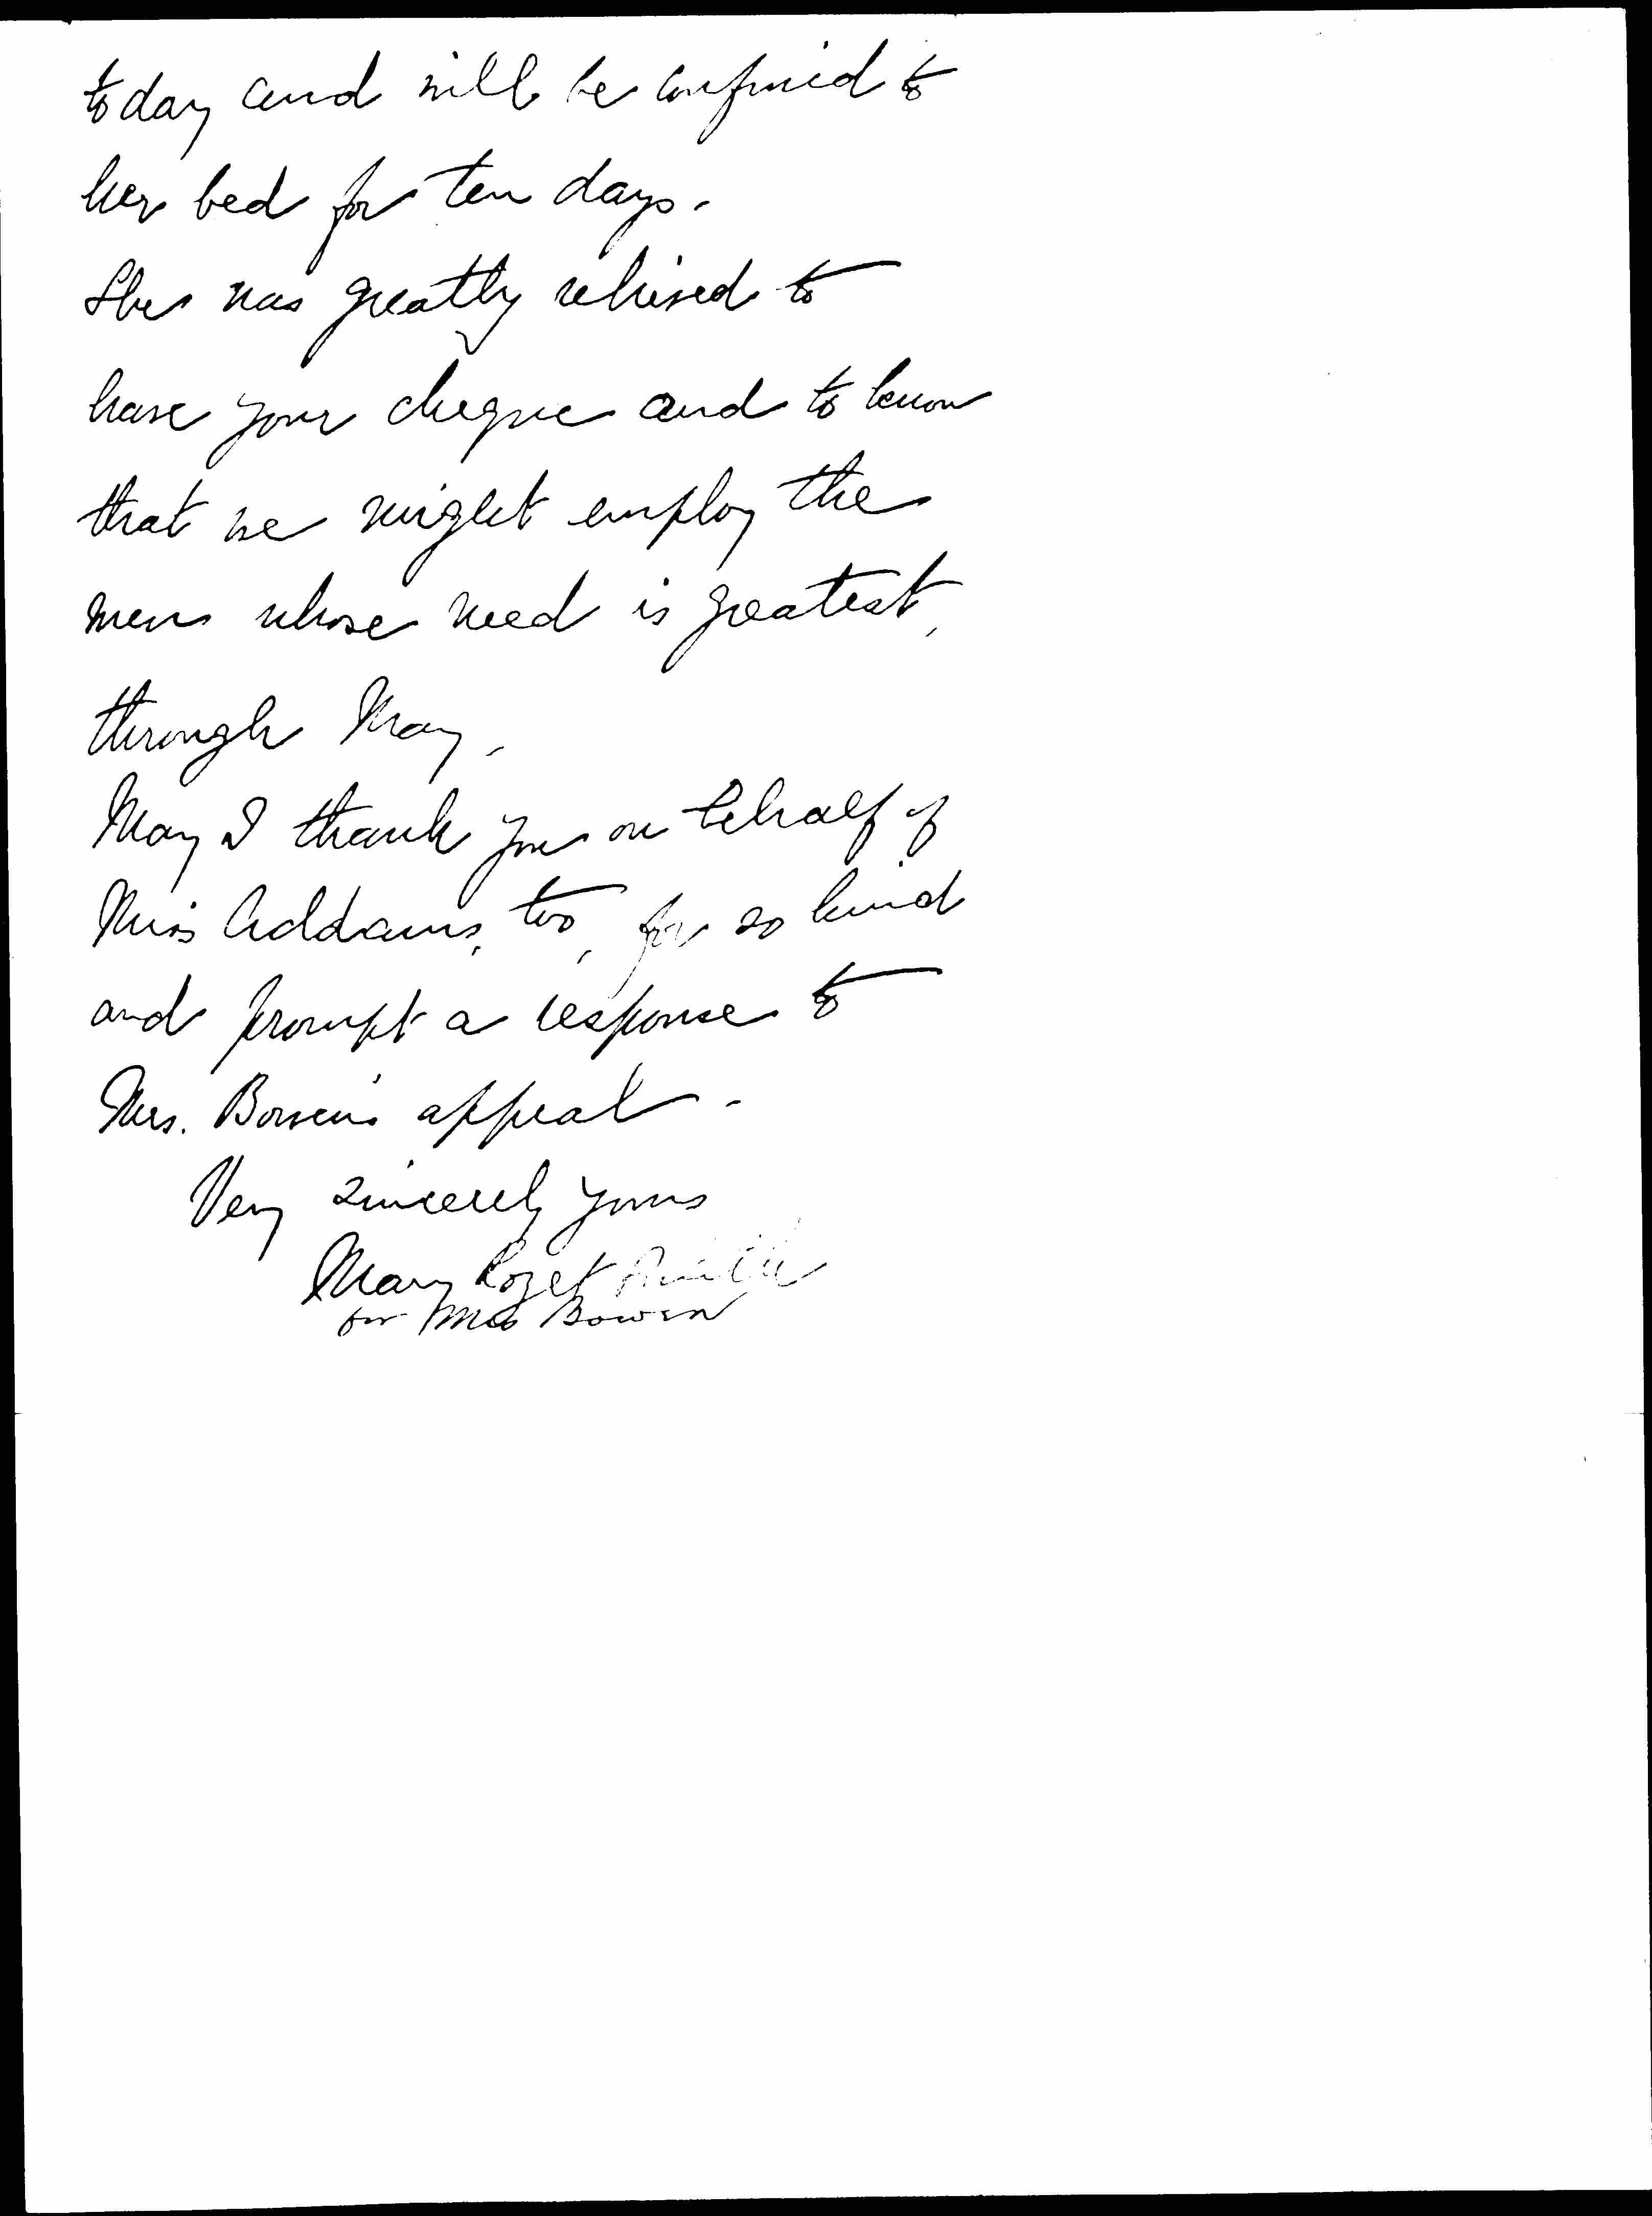 today and will be confined to
her bed for ten days.
She was greatly relieved to
have your cheque and to know
that we might employ the
men whose need is greatest,
through May.
May I thank you on behalf of
Miss Addams, too, for so kind
and prompt a response to
Mrs. Bowen's appeal.
Very sincerely yours
Mary Rozet Smith
for Mrs Bowen